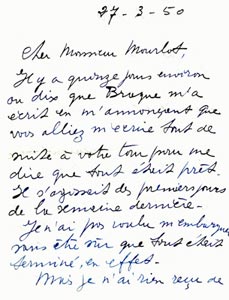 27-3-50
Cher Monsieur Mourlot,
Il y a quinze jours environ
ou dix que Braque m'a
écrit en m'annonçant que
vous alliez m'écrire tout de
suite à votre tour pour me
dire que tout était prêt.
Il s'agissait des premiers jours
de la semaine dernière.
Je n'ai pas voulu m'embarquer
sans être sûr que tout était
terminé, en effet.
Mais je n'ai rien reçu de